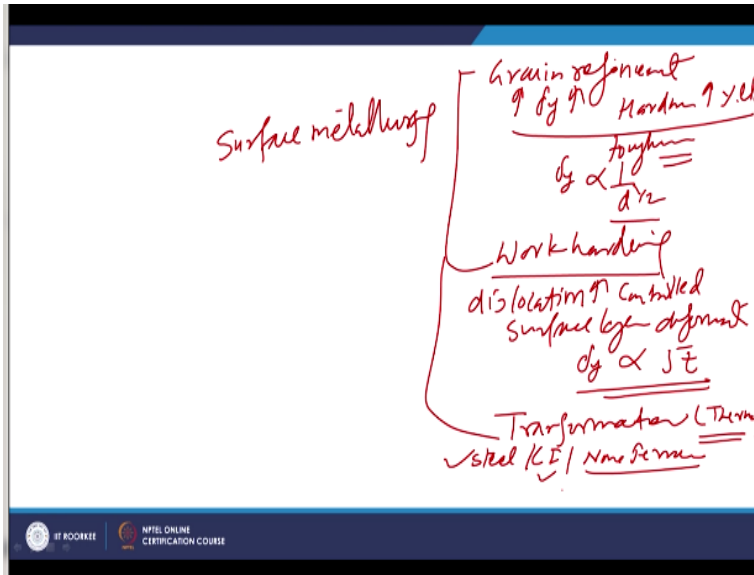 Surface metallurgy
Grain refinement
↑ σy ↑ Hardn ↑ y.
toughn
σy ∝ 1/d^1/2
Work hardening
dislocation ↑ Controlled
surface layer deformat
σy ∝ √
Transformation (Therm
✓ steel / CI / Non Ferrous
✓
IIT ROORKEE
NPTEL ONLINE
CERTIFICATION COURSE